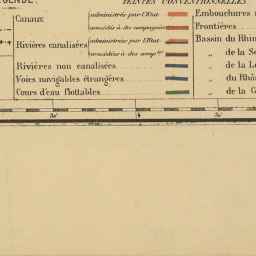 TEINTES CONVENTIONNELLES
Canaux
administrés par l'Etat
concédés à des compagnies
Rivières canalisées
administrées par l'Etat
concédées à des comp.ies
Rivières non canalisées
Voies navigables étrangères
Cours d'eau flottables
Embouchures
Frontières
Bassin du Rhin
„ de la Se
„ de la Lo
„ du Rhô
„ de la G